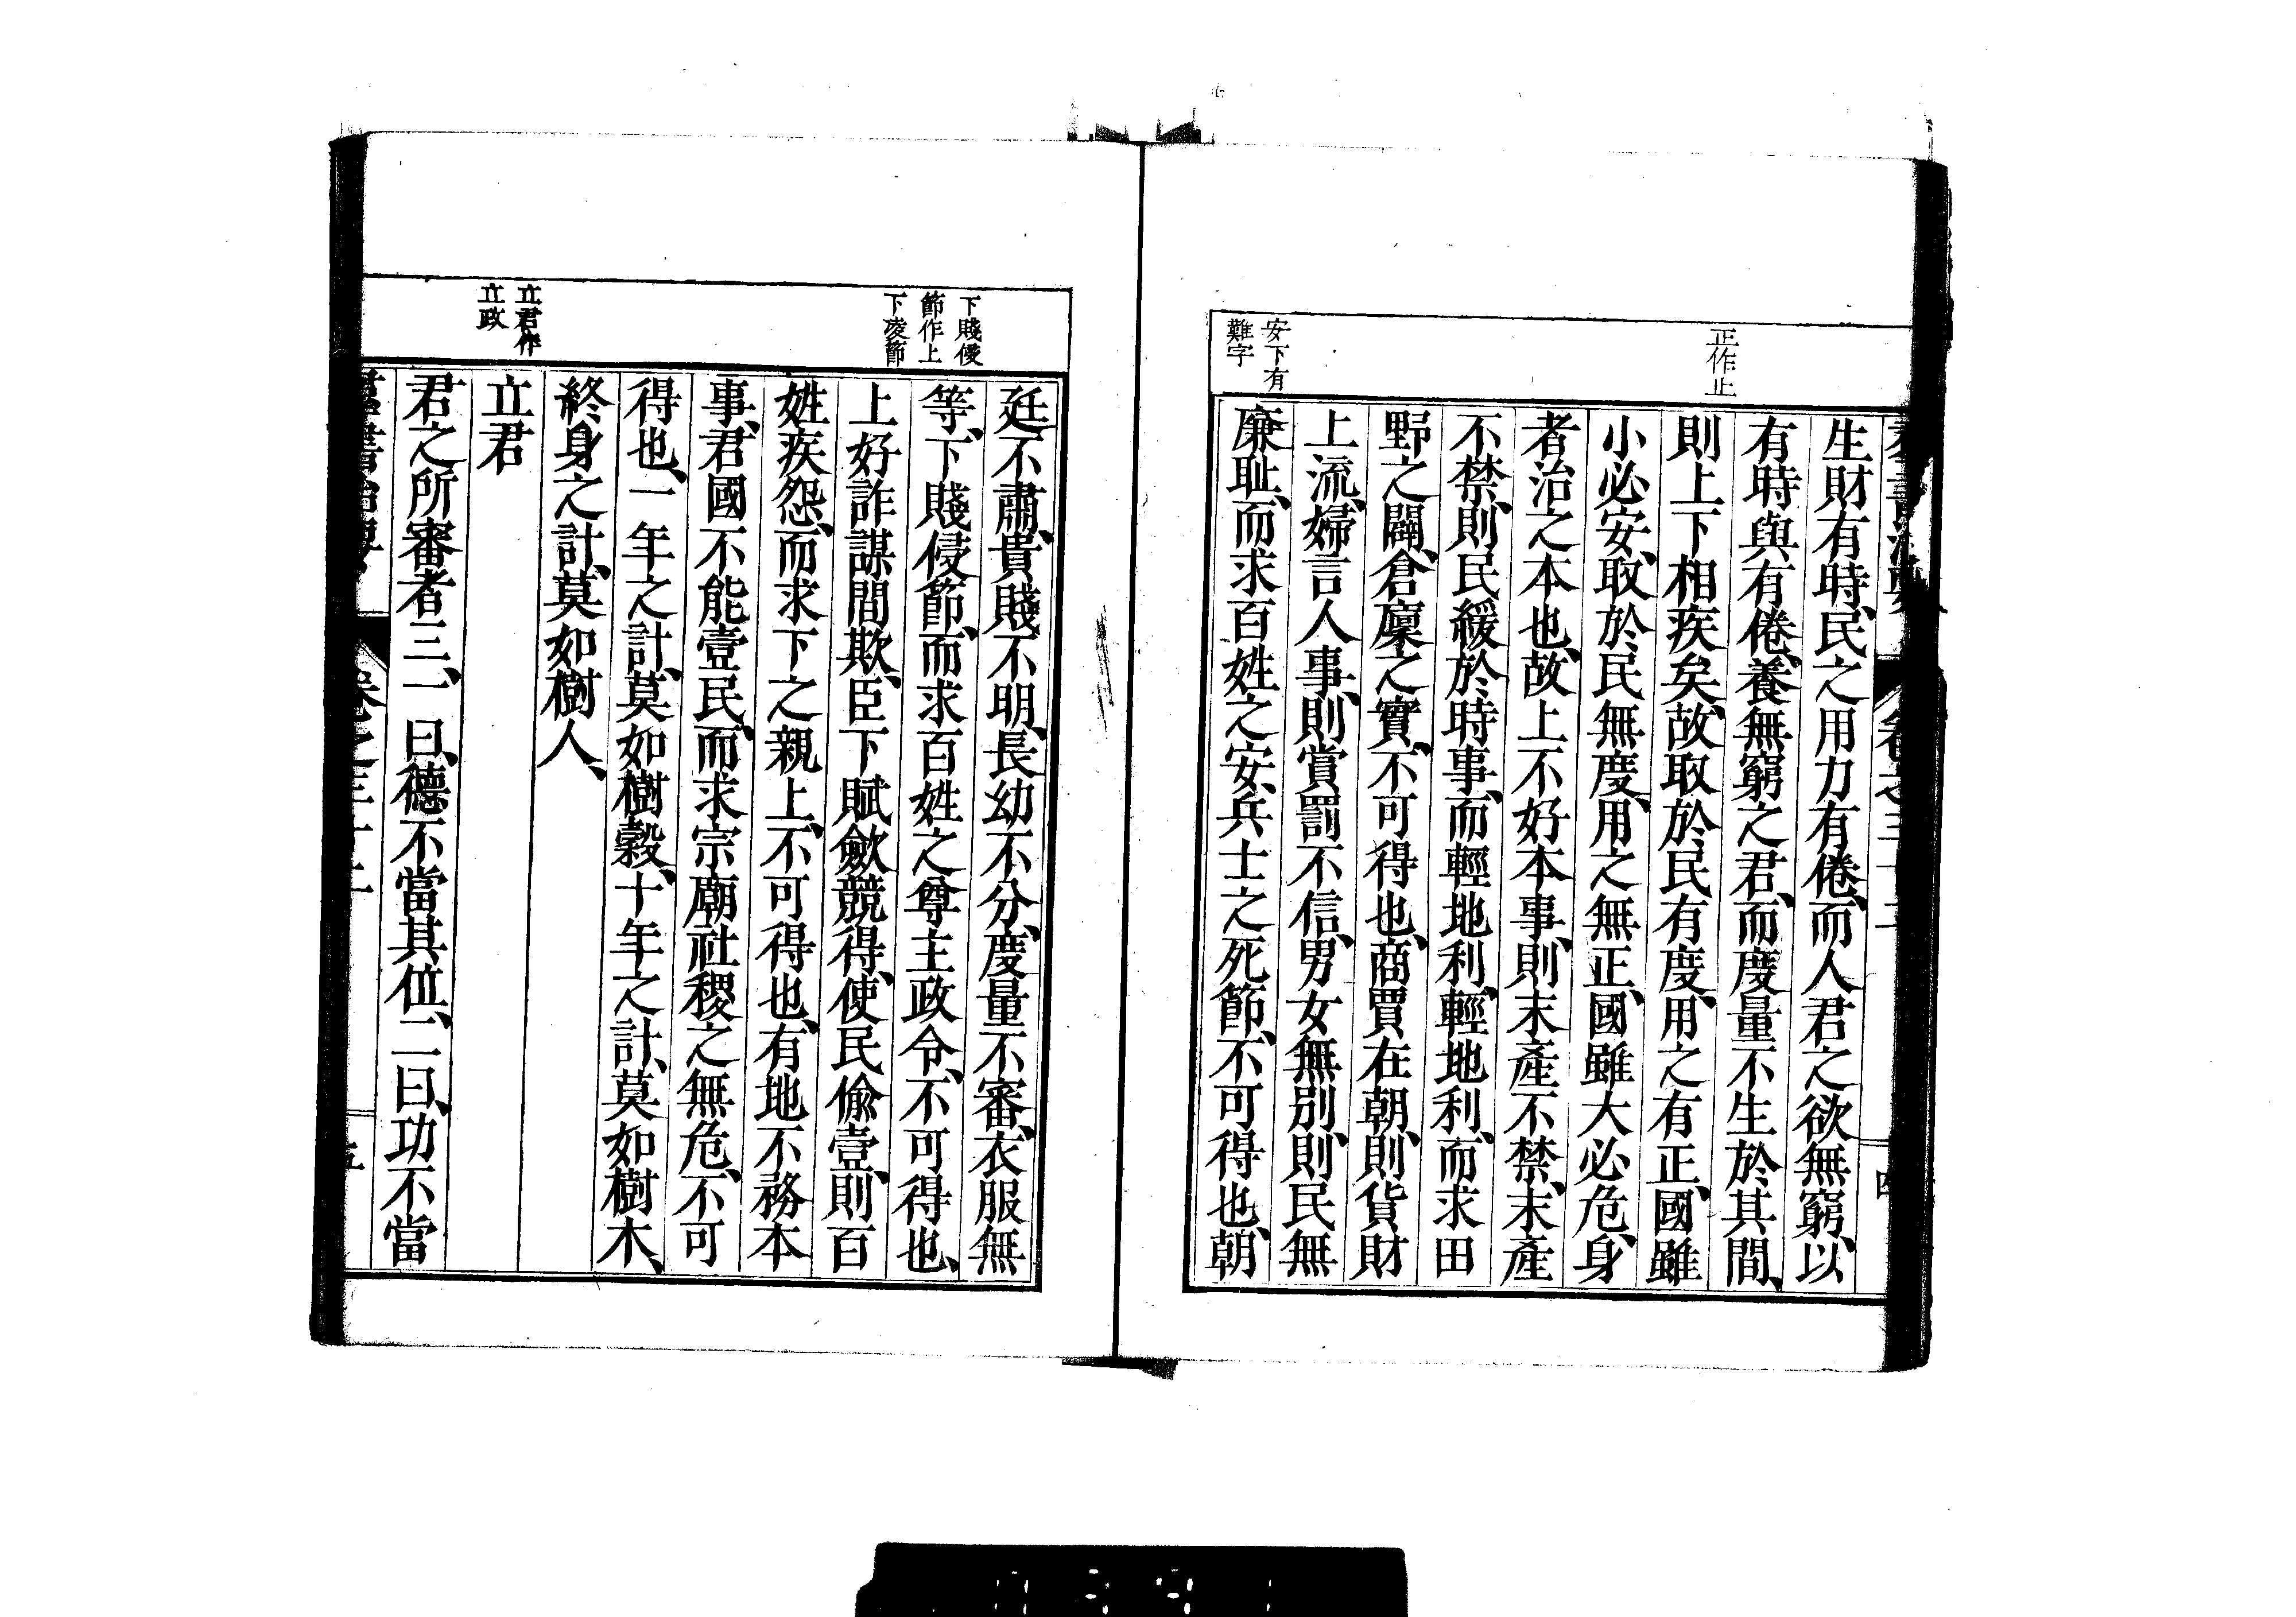 正作止
安下有
難字
生財有時、民之用力有倦、而人君之欲無窮、以
有時與有倦、養無窮之君、而度量不生於其間、
則上下相疾矣、故取於民有度、用之有正、國雖
小必安、取於民無度、用之無正、國雖大必危、身
者治之本也、故上不好本事、則末產不禁、末產
不禁、則民緩於時事、而輕地利、輕地利、而求田
野之闢、倉廩之實、不可得也、商賈在朝、則貨財
上流、婦言人事、則賞罰不信、男女無別、則民無
廉耻、而求百姓之安、兵士之死節、不可得也、朝
下賤侵
節作上
下凌節
立君作
立政
廷不肅、貴賤不明、長幼不分、度量不審、衣服無
等、下賤侵節、而求百姓之尊主政令、不可得也、
上好詐謀間欺、臣下賦斂競得、使民偷壹、則百
姓疾怨、而求下之親上、不可得也、有地不務本
事、君國不能壹民、而求宗廟社稷之無危、不可
得也、一年之計、莫如樹穀、十年之計、莫如樹木、
終身之計、莫如樹人、
立君
君之所審者三、一曰、德不當其位、二曰、功不當